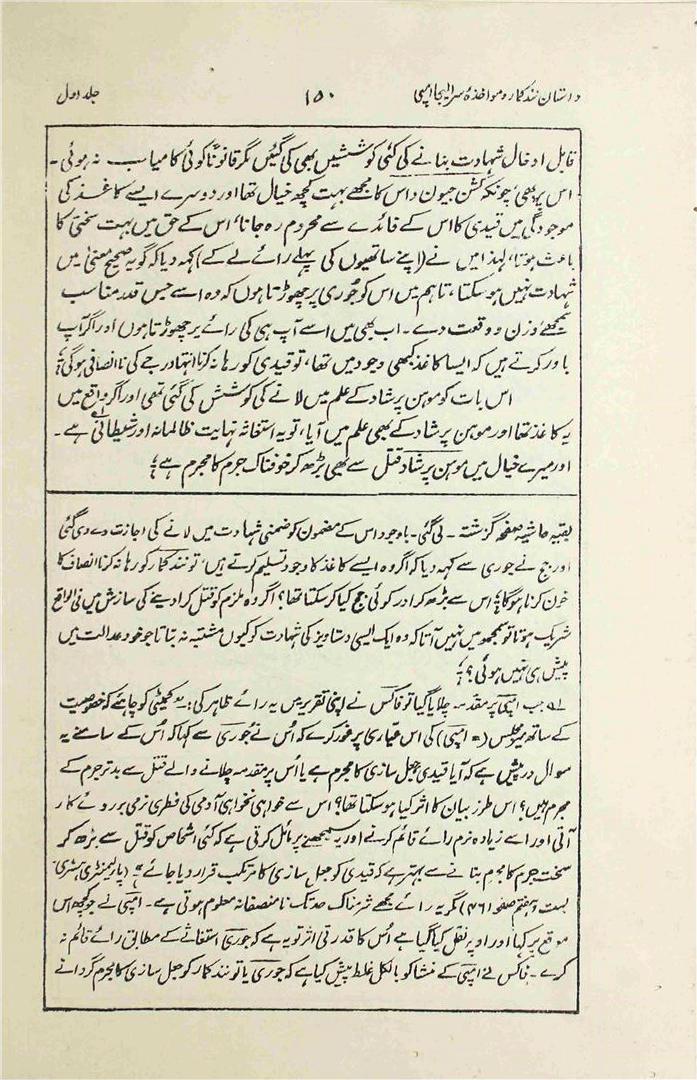 داستان نند کمار و مواخذۂ سر الیجا امپی ۱۵۰ جلد اول
قابل ادخال شہادت بنانے کی کئی کوششیں بھی کی گئیں مگر قانوناً کوئی کامیاب نہ ہوئی۔
اس پر بھی، چونکہ کشن جیون داس کا مجھے بہت کچھ خیال تھا اور دوسرے ایسے کاغذ کی
موجودگی میں قیدی کا اس کے فائدے سے محروم رہ جانا، اس کے حق میں بہت سختی کا
باعث ہوتا، لہذا میں نے (اپنے ساتھیوں کی پہلے رائے لے کے) کہہ دیا کہ گو یہ صحیح معنیٰ میں
شہادت نہیں ہو سکتا، تاہم میں اس کو جُوری پر چھوڑتا ہوں کہ وہ اسے جس قدر مناسب
سمجھے وزن و وقعت دے۔ اب بھی میں اسے آپ ہی کی رائے پر چھوڑتا ہوں اور اگر آپ
باور کرتے ہیں کہ ایسا کاغذ کبھی وجود میں تھا، تو قیدی کو رہا نہ کرنا انتہا درجے کی ناانصافی ہوگی؛
اس بات کو موہن پرشاد کے علم میں لانے کی کوشش کی گئی تھی اور اگر واقع میں
یہ کاغذ تھا اور موہن پرشاد کے بھی علم میں آیا، تو یہ استغاثہ نہایت ظالمانہ اور شیطانی ہے۔
اور میرے خیال میں موہن پرشاد قتل سے بھی بڑھ کر خوفناک جرم کا مجرم ہے؛
بقیہ حاشیہ صفحہ گزشتہ۔ لی گئی۔ باوجود اس کے مضمون کو ضمنی شہادت میں لانے کی اجازت دے دی گئی
اور جج نے جوری سے کہہ دیا کہ اگر وہ ایسے کاغذ کا وجود تسلیم کرتے ہیں، تو نند کمار کو رہا نہ کرنا انصاف کا
خون کرنا ہوگا؛ اس سے بڑھ کر اور کوئی جج کیا کر سکتا تھا؟ اگر وہ ملزم کو قتل کرا دینے کی سازش میں فی الواقع
شریک ہوتا تو سمجھ میں نہیں آتا کہ وہ ایک ایسی دستاویز کی شہادت کو کیوں مشتبہ نہ بتاتا جو خود عدالت میں
پیش ہی نہیں ہوئی؟؛
لہ جب امپی پر مقدمہ چلایا گیا تو فاکس نے اپنی تقریر میں یہ رائے ظاہر کی:۔ ”کمیٹی کو چاہئے کہ خصوصیت
کے ساتھ میر مجلس (= امپی) کی اس عیاری پر غور کرے کہ اُس نے جُوری سے کہا کہ اُس کے سامنے یہ
سوال درپیش ہے کہ آیا قیدی جعل سازی کا مجرم ہے یا اُس پر مقدمہ چلانے والے قتل سے بدتر جرم کے
مجرم ہیں؟ اس طرز بیان کا اثر کیا ہو سکتا تھا؟ اس سے خواہی نخواہی آدمی کی فطری نرمی بروئے کار
آتی اور اسے زیادہ نرم رائے قائم کرنے اور یہ سمجھنے پر مائل کرتی ہے کہ کئی اشخاص کو قتل سے بڑھ کر
سخت جرم کا مجرم بنانے سے بہتر ہے کہ قیدی کو جعل سازی کا مرتکب قرار دیا جائے“ (پارلیمنٹری ہسٹری
بست و ہفتم صفحہ ۴۶۱) مگر یہ رائے مجھے شرمناک حد تک نامنصفانہ معلوم ہوتی ہے۔ امپی نے جو کچھ اس
موقع پر کہا اور اوپر نقل کیا گیا ہے اُس کا قدرتی اثر تو یہ ہے کہ جوری استغاثے کے مطابق رائے قائم نہ
کرے۔ فاکس نے امپی کے منشا کو بالکل غلط پیش کیا ہے کہ جوری یا تو نند کمار کو جعل سازی کا مجرم گردانے